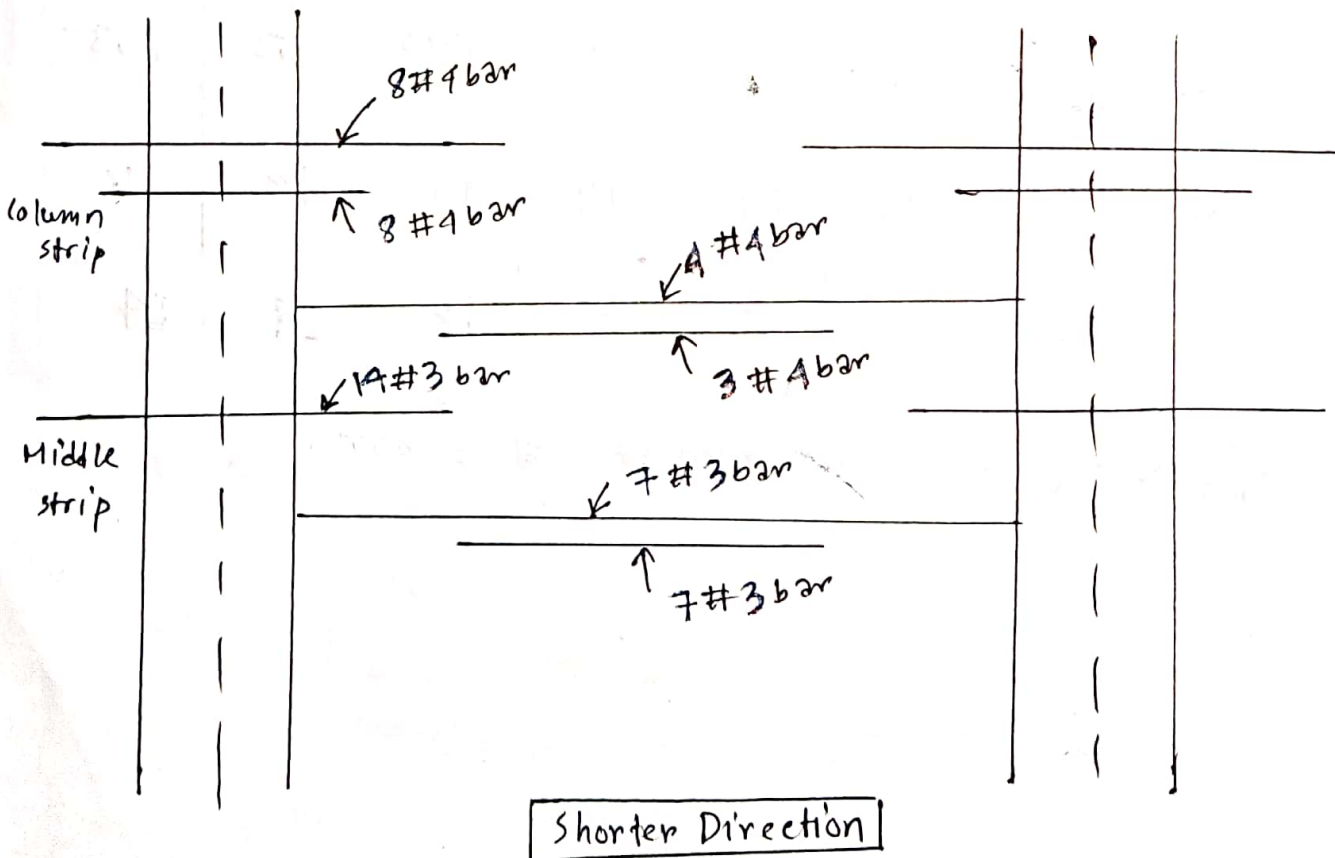 8#4 bar
8 #4 bar
Column
strip
4 #4 bar
3 #4 bar
14#3 bar
Middle
strip
7 #3 bar
7 #3 bar
Shorter Direction